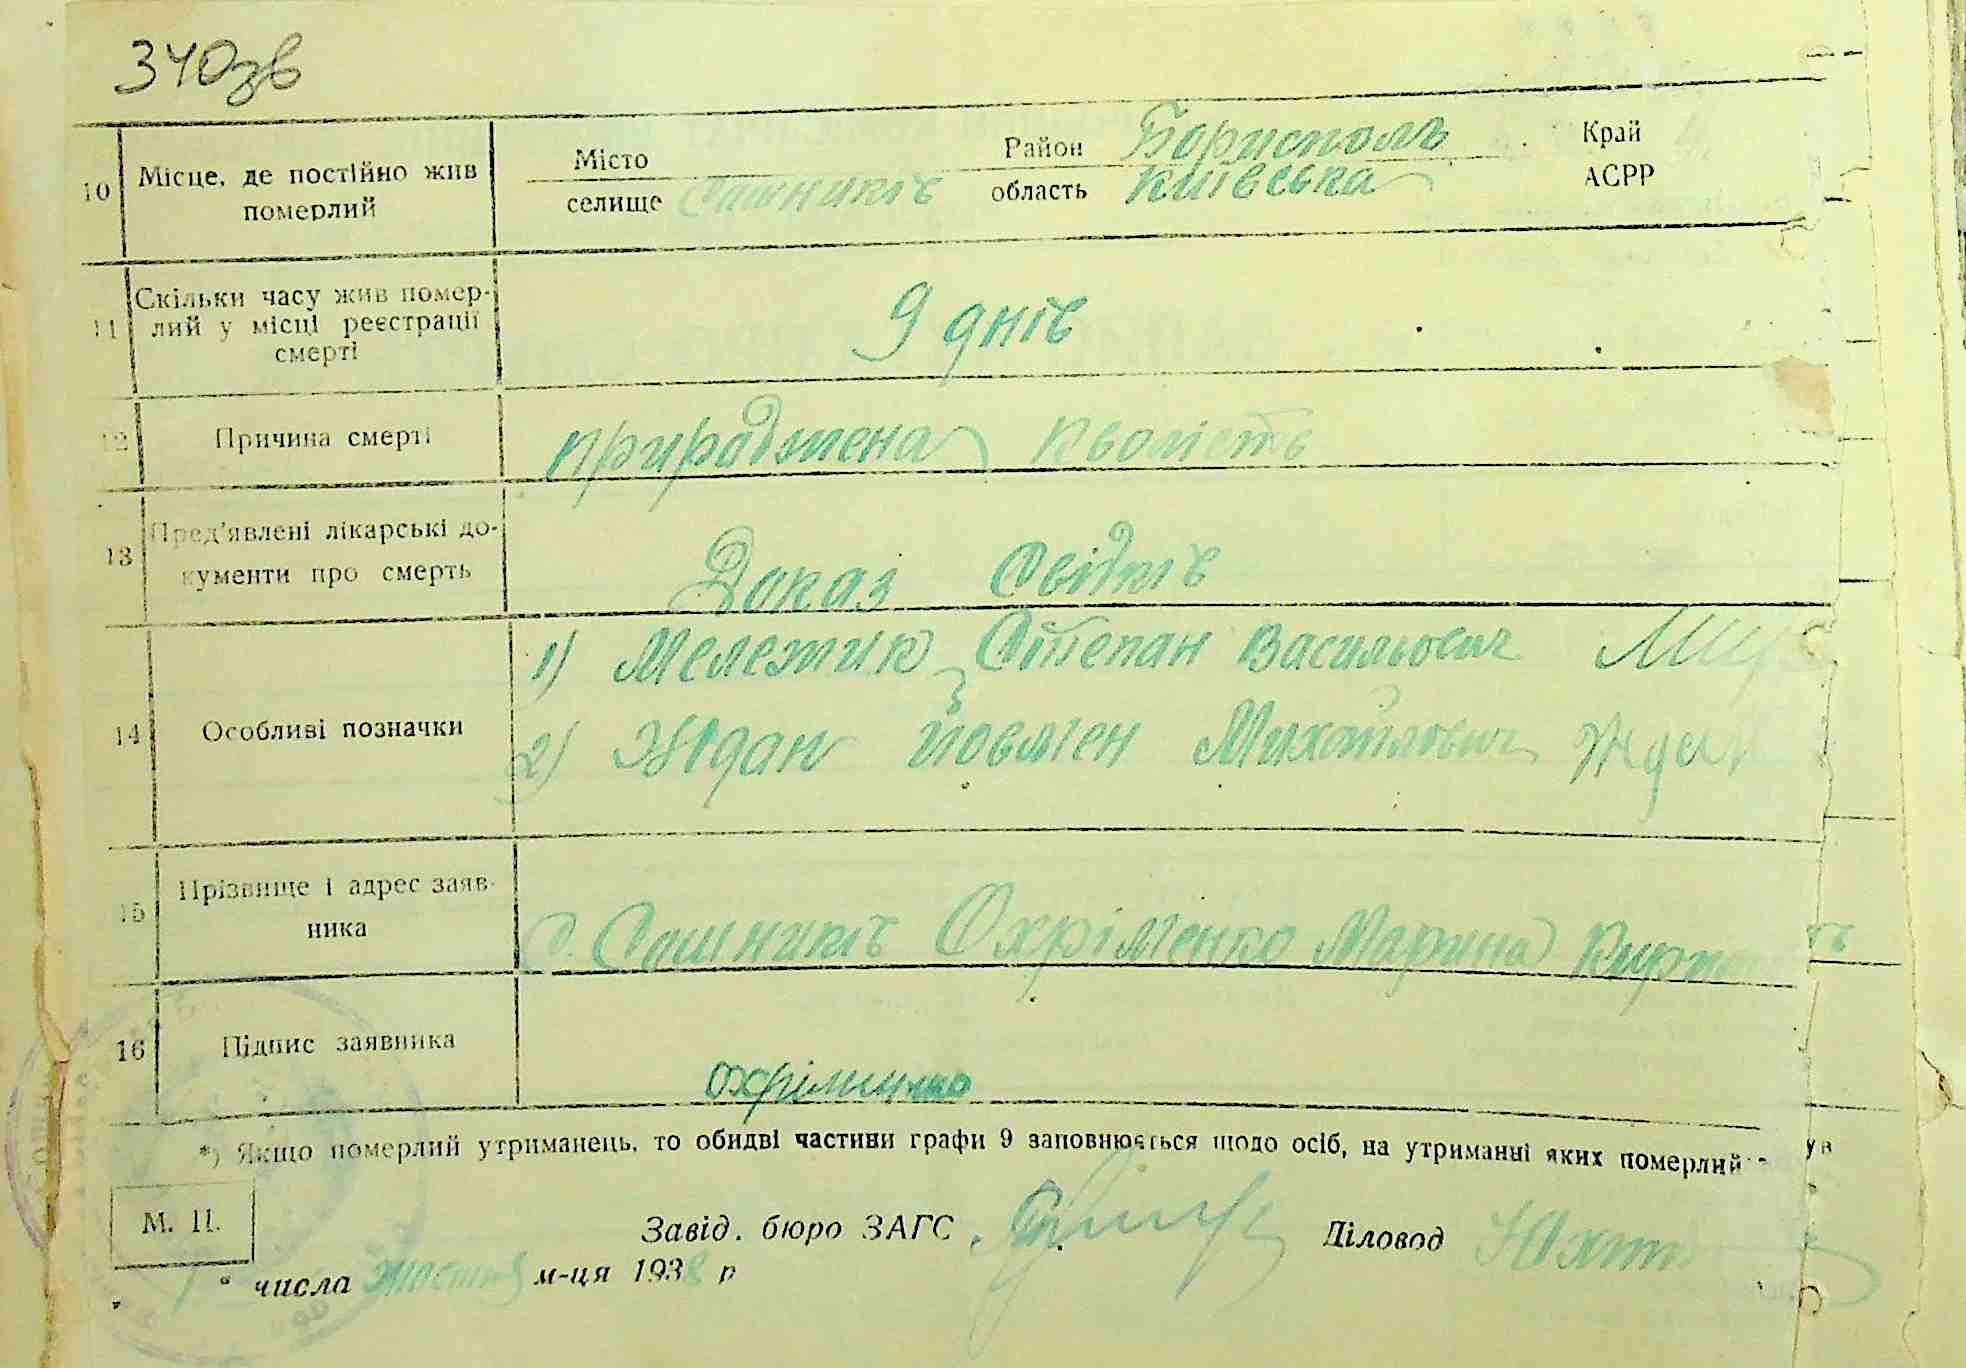 340зв
10 Місце, де постійно жив померлий
Місто Район Бориспомъ Край
селище Сошників область Київська АСРР
11 Скільки часу жив помер-
лий у місці реєстрації
смерті
9 днів
12 Причина смерті
прирадшена кволість
13 Пред'явлені лікарські до-
кументи про смерть
Доказ Свідків
14 Особливі позначки
1) Мележик Степан Васильович
2) Ждан Йовмен Михайлович Ждан
15 Прізвище і адрес заяв-
ника
с. Сошників Охріменко Марина
16 Підпис заявника
Охріминко
*) Якщо померлий утриманець, то обидві частини графи 9 заповнюється щодо осіб, на утриманні яких померлий
М. П.
Завід. бюро ЗАГС Діловод
числа жовтня м-ця 1938 р